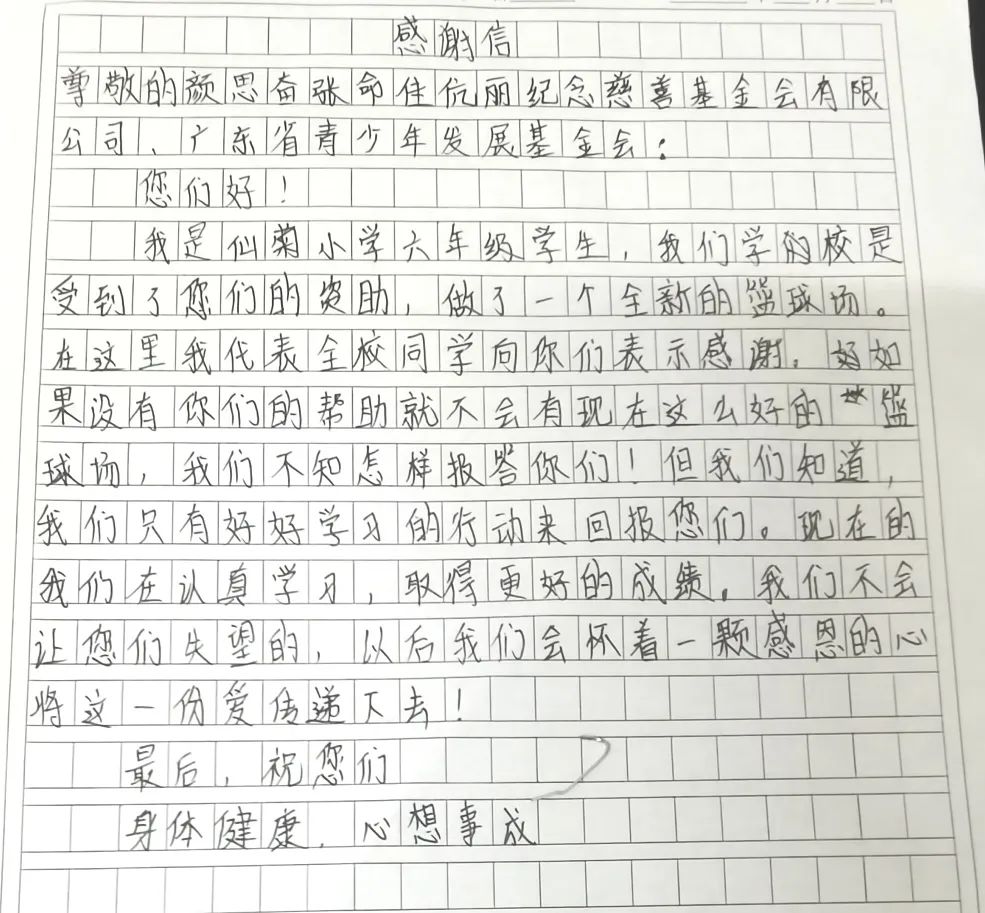 感谢信
尊敬的颜思奋张命住伉丽纪念慈善基金会有限
公司、广东省青少年发展基金会：
您们好！
我是仙菊小学六年级学生，我们学的校是
受到了您们的资助，做了一个全新的篮球场。
在这里我代表全校同学向你们表示感谢。好如
果没有你们的帮助就不会有现在这么好的篮
球场，我们不知怎样报答你们！但我们知道，
我们只有好好学习的行动来回报您们。现在的
我们在认真学习，取得更好的成绩。我们不会
让您们失望的，以后我们会怀着一颗感恩的心
将这一份爱传递下去！
最后，祝您们
身体健康、心想事成